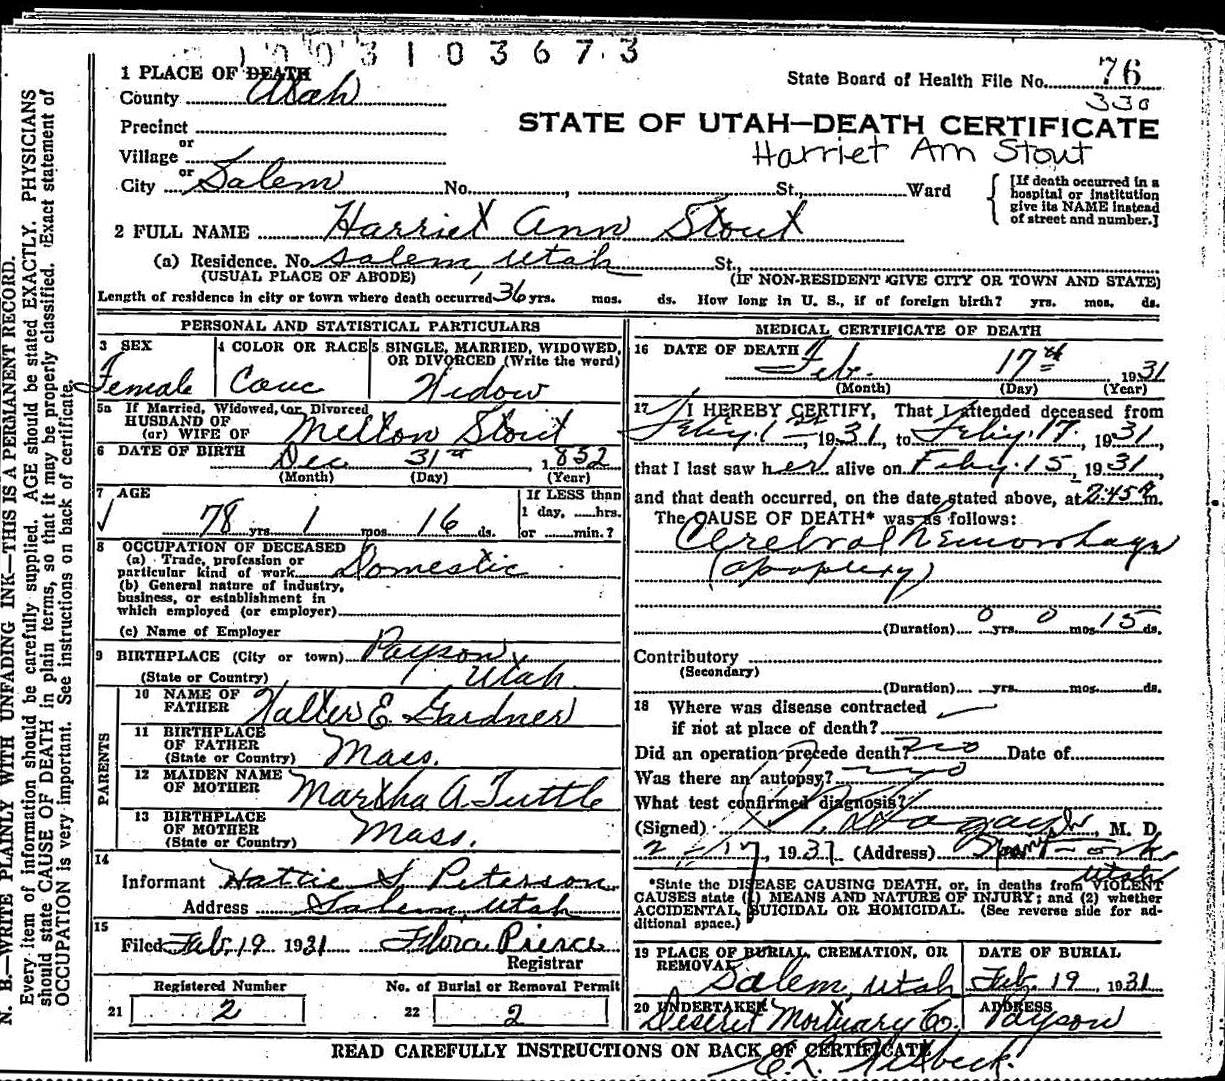 1003103673
1 PLACE OF DEATH
County Utah
State Board of Health File No. 76
330
Precinct
or
Village
or
City Salem No. , St., Ward
STATE OF UTAH—DEATH CERTIFICATE
Harriet Ann Stout
[If death occurred in a
hospital or institution
give its NAME instead
of street and number.]
2 FULL NAME Harriet Ann Stout
(a) Residence. No. Salem, Utah St.,
(USUAL PLACE OF ABODE) (IF NON-RESIDENT GIVE CITY OR TOWN AND STATE)
Length of residence in city or town where death occurred 36 yrs. mos. ds. How long in U. S., if of foreign birth? yrs. mos. ds.
PERSONAL AND STATISTICAL PARTICULARS
3 SEX
Female
4 COLOR OR RACE
Cauc
5 SINGLE, MARRIED, WIDOWED,
OR DIVORCED (Write the word)
Widow
5a If Married, Widowed, or Divorced
HUSBAND OF
(or) WIFE OF Milton Stout
6 DATE OF BIRTH Dec 31st, 1852
(Month) (Day) (Year)
7 AGE
78 yrs. 1 mos. 16 ds.
If LESS than
1 day, ......hrs.
or ......min.?
8 OCCUPATION OF DECEASED
(a) Trade, profession or
particular kind of work Domestic
(b) General nature of industry,
business, or establishment in
which employed (or employer)
(c) Name of Employer
9 BIRTHPLACE (City or town) Payson,
(State or Country) Utah.
PARENTS
10 NAME OF
FATHER Walter E. Gardner
11 BIRTHPLACE
OF FATHER
(State or Country) Mass.
12 MAIDEN NAME
OF MOTHER Martha A. Tuttle
13 BIRTHPLACE
OF MOTHER
(State or Country) Mass.
14
Informant Hattie S. Peterson
Address Salem, Utah
15
Filed Feb. 19 1931 Flora Pierce
Registrar
Registered Number No. of Burial or Removal Permit
21 2 22 2
MEDICAL CERTIFICATE OF DEATH
16 DATE OF DEATH
Feb. 17th 1931
(Month) (Day) (Year)
17 I HEREBY CERTIFY, That I attended deceased from
Feby. 1st, 1931, to Feby. 17, 1931,
that I last saw her alive on Feby. 15, 1931,
and that death occurred, on the date stated above, at 2:45 a m.
The CAUSE OF DEATH* was as follows:
Cerebral hemorrhage
(apoplexy)
(Duration) 0 yrs. 0 mos. 15 ds.
Contributory
(Secondary)
(Duration) yrs. mos. ds.
18 Where was disease contracted
if not at place of death?
Did an operation precede death? no Date of
Was there an autopsy? no
What test confirmed diagnosis?
(Signed) , M. D.
2-17, 1931 (Address)
Utah
*State the DISEASE CAUSING DEATH, or, in deaths from VIOLENT
CAUSES state (1) MEANS AND NATURE OF INJURY; and (2) whether
ACCIDENTAL, SUICIDAL OR HOMICIDAL. (See reverse side for ad-
ditional space.)
19 PLACE OF BURIAL, CREMATION, OR
REMOVAL
Salem, Utah
DATE OF BURIAL
Feb. 19, 1931
20 UNDERTAKER
Deseret Mortuary Co.
ADDRESS
Payson
READ CAREFULLY INSTRUCTIONS ON BACK OF CERTIFICATE
N. B.—WRITE PLAINLY WITH UNFADING INK—THIS IS A PERMANENT RECORD.
Every item of information should be carefully supplied. AGE should be stated EXACTLY. PHYSICIANS
should state CAUSE OF DEATH in plain terms, so that it may be properly classified. Exact statement of
OCCUPATION is very important. See instructions on back of certificate.